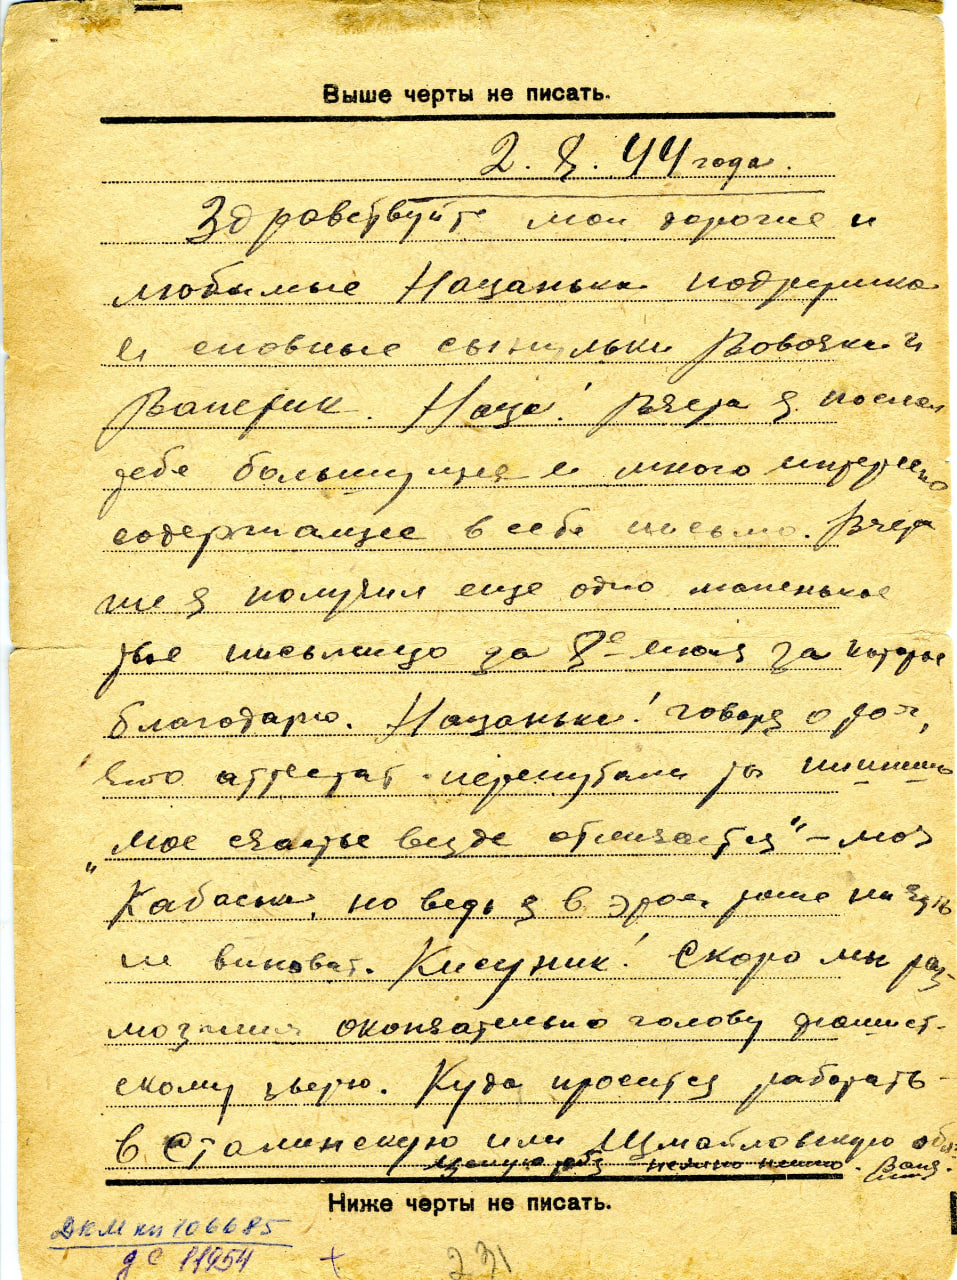 Выше черты не писать.
2. 8. 44 года.
Здравствуйте мои дорогие и
любимые Нацанька подружка
и словные сынульки Вовочка и
Валерик. Наца! Вчера я послал
тебе большущее и много интересно
содержащее в себе письмо. Вчера
же я получил еще одно маленькое
твое письмецо за 8е июля за которое
благодарю. Нацанька! говоря о том,
что аттестат перепутали ты пишешь
"мое счастье везде отличается" – моя
но ведь я в этом тоже ни чуть
не виноват. Кисуник! Скоро мы раз-
мозжим окончательно голову фашист-
скому зверю. Куда проситься работать
в Сталинскую или Измайловскую обл.
Целую тебя нежно нежно. Ваня.
Ниже черты не писать.
ДКМ кп 106685
дс 11954
+
231